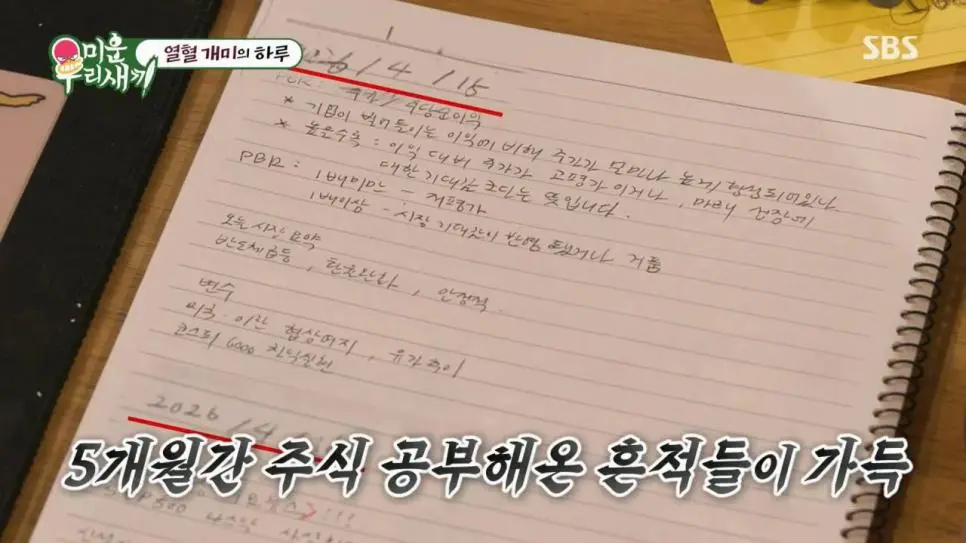 미운 우리새끼
열혈 개미의 하루
SBS
/ 4 / 15
PER : 주당순이익
* 기업이 벌어들이는 이익에 비해 주가가 얼마나 높게 형성되어있나
* 높은수축 : 이익 대비 주가가 고평가 이거나, 미래 성장에
대한 기대감 크다는 뜻입니다.
PBR : 1배미만 - 저평가
1배이상 - 시장 기대값이 반영 됐거나 거품
오늘시장요약
반도체급등, 환율완화, 안정적.
변수
미국·이란 협상여지, 유가추이
코스피 6000 진입실현
2026 / 4
5개월간 주식 공부해온 흔적들이 가득
500